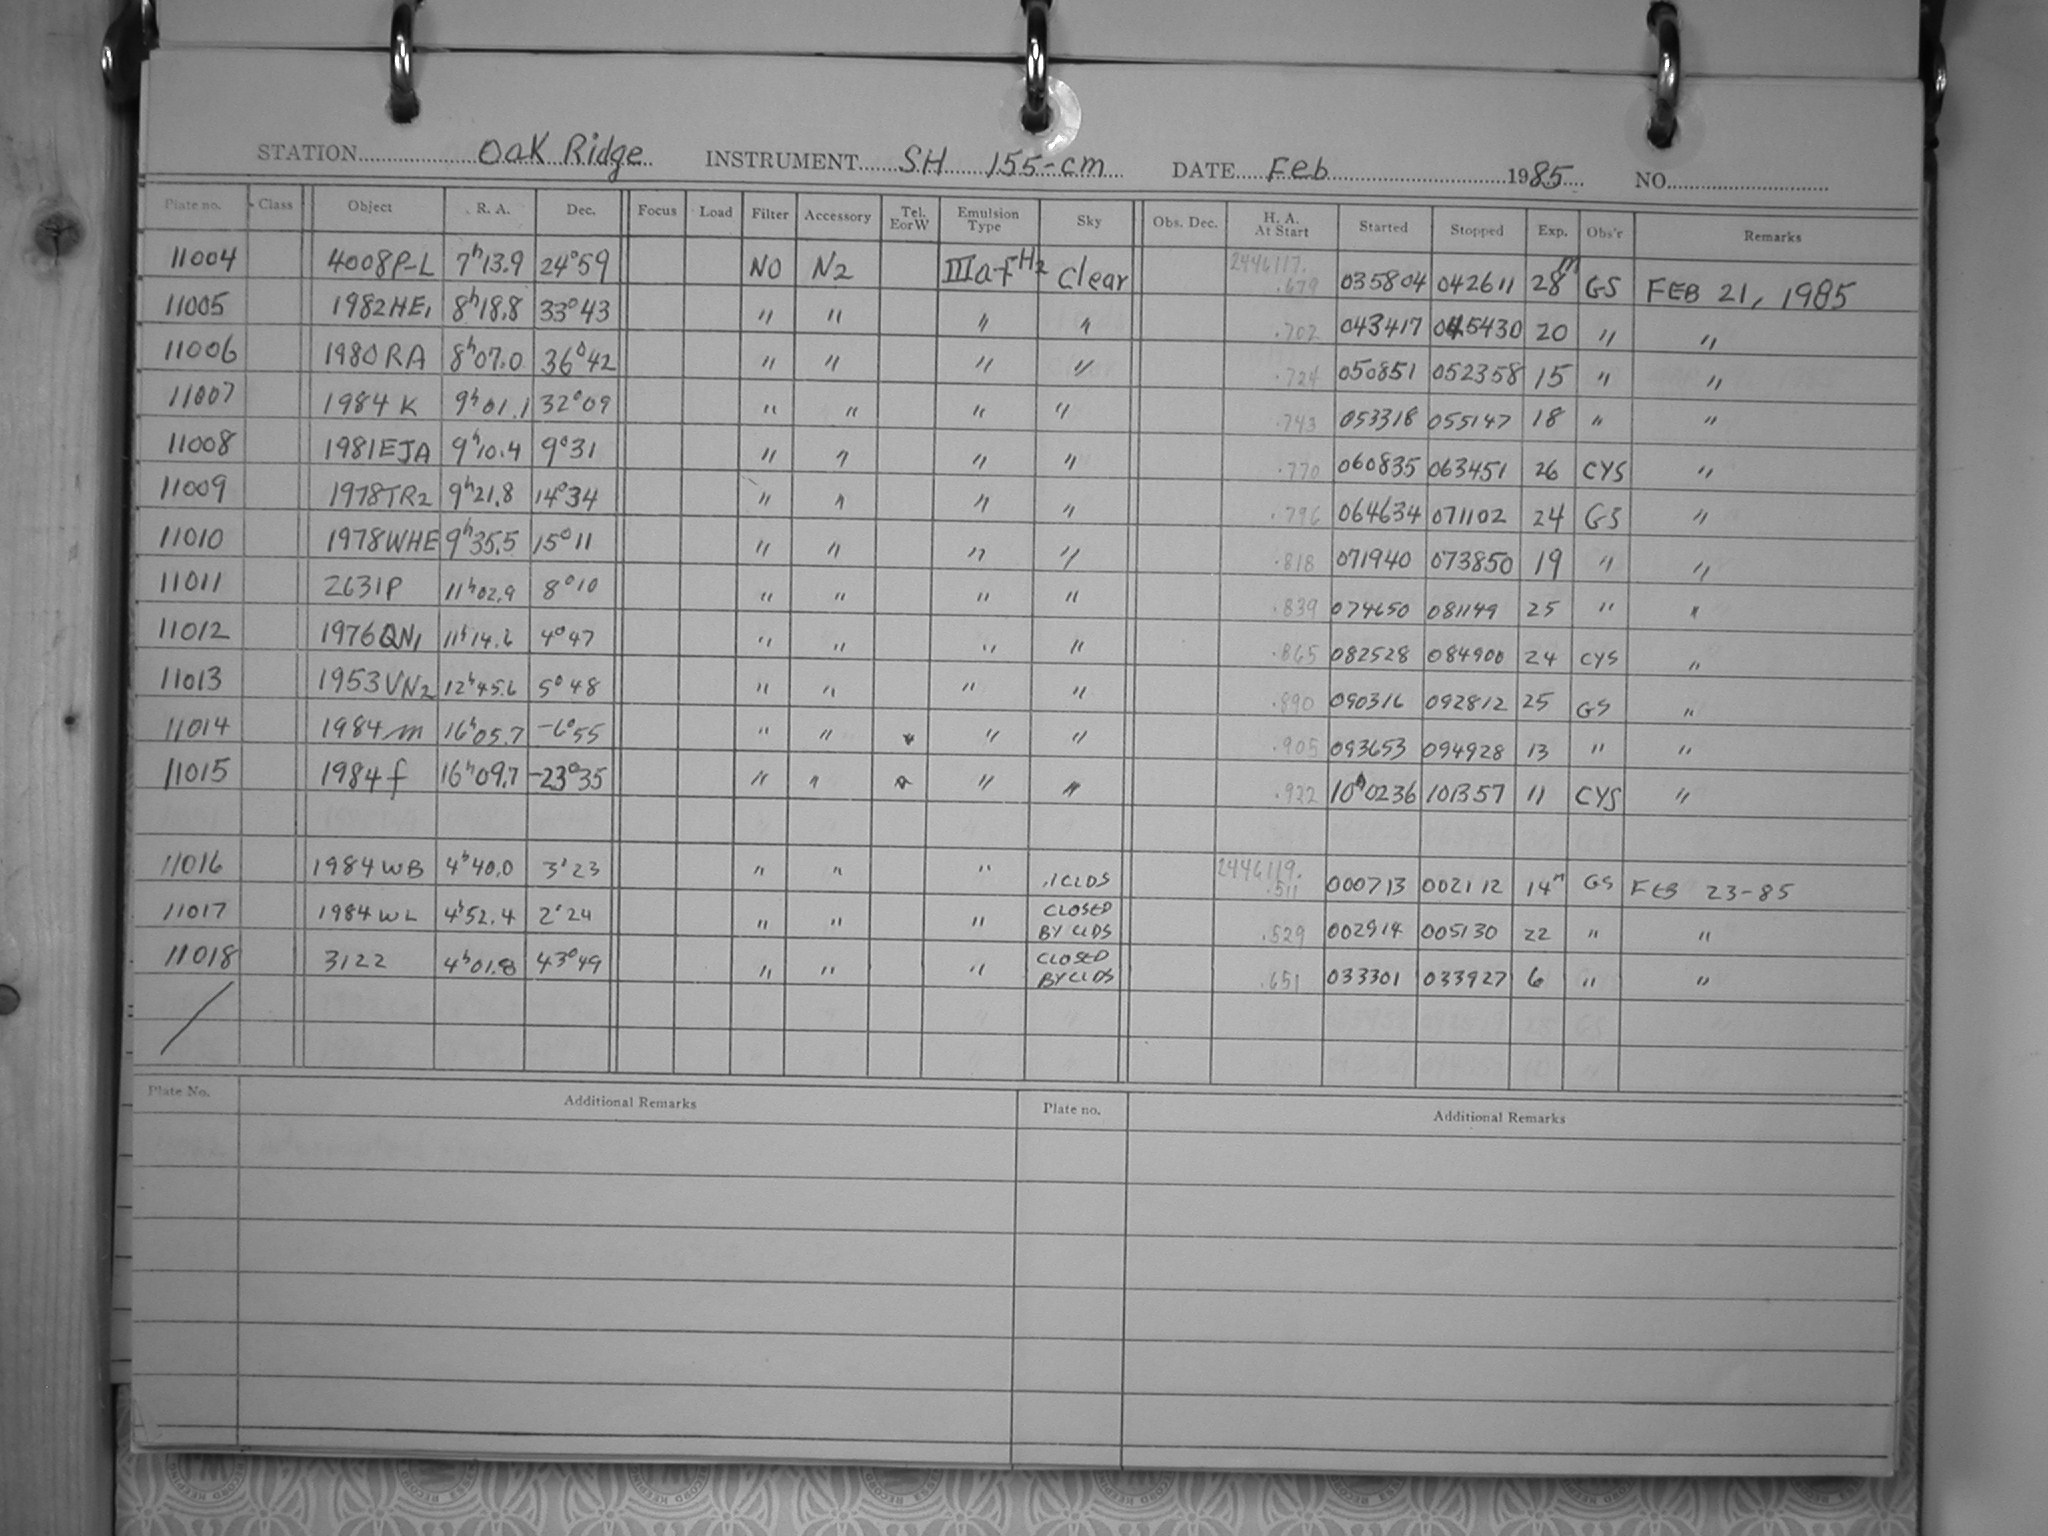 STATION Oak Ridge INSTRUMENT SH 155-cm DATE Feb 1985 NO.
Plate no. Class Object R. A. Dec. Focus Load Filter Accessory Tel. E or W Emulsion Type Sky Obs. Dec. H. A. At Start Started Stopped Exp. Obs'r Remarks
11004 4008P-L 7h13.9 24°59 NO N2 IIIa-f H2 Clear 2446117. .679 035804 042611 28m GS FEB 21, 1985
11005 1982HE1 8h18.8 33°43 " " " " .702 043417 045430 20 " "
11006 1980RA 8h07.0 36°42 " " " " .724 050851 052358 15 " "
11007 1984 K 9h01.1 32°09 " " " " .743 053318 055147 18 " "
11008 1981EJA 9h10.4 9°31 " " " " .770 060835 063451 26 CYS "
11009 1978TR2 9h21.8 14°34 " " " " .796 064634 071102 24 GS "
11010 1978WHE 9h35.5 15°11 " " " " .818 071940 073850 19 " "
11011 2631P 11h02.9 8°10 " " " " .839 074650 081149 25 " "
11012 1976QN1 11h14.6 4°47 " " " " .865 082528 084900 24 CYS "
11013 1953VN2 12h45.6 5°48 " " " " .890 090316 092812 25 GS "
11014 1984 m 16h05.7 -6°55 " " * " " .905 093653 094928 13 " "
11015 1984 f 16h09.7 -23°35 " " * " " .922 10h0236 101357 11 CYS "
11016 1984WB 4h40.0 3°23 " " " .1 CLDS 2446119. .511 000713 002112 14m GS FEB 23-85
11017 1984WL 4h52.4 2°24 " " " CLOSED BY CLDS .529 002914 005130 22 " "
11018 3122 4h01.8 43°49 " " " CLOSED BY CLDS .651 033301 033927 6 " "
Plate No. Additional Remarks Plate no. Additional Remarks